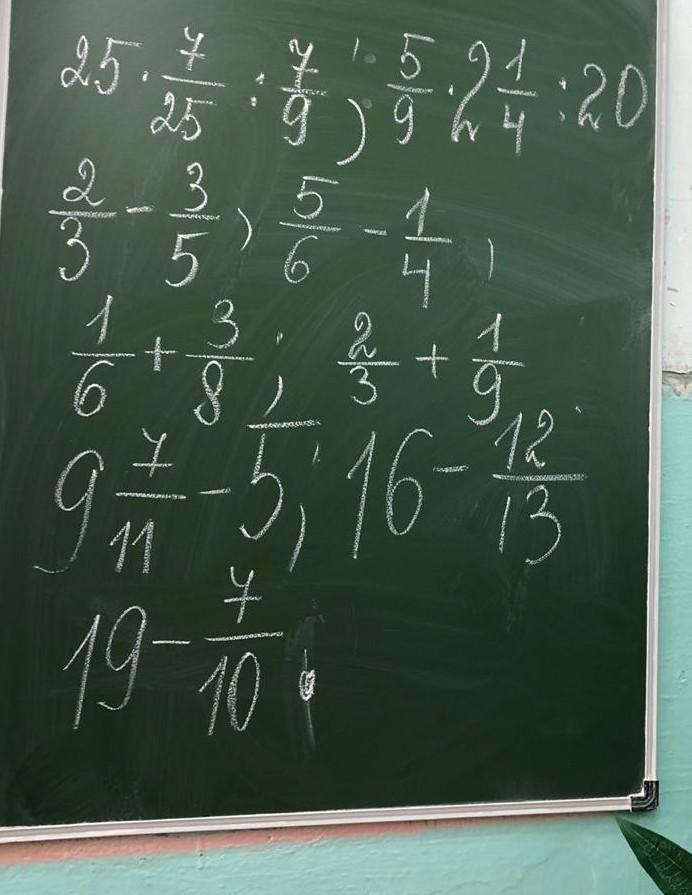 25 · 7/25 : 7/9 ; 5/9 · 2 1/4 : 20
2/3 - 3/5 ; 5/6 - 1/4 ;
1/6 + 3/8 ; 2/3 + 1/9
9 7/11 - 5 ; 16 - 12/13
19 - 7/10